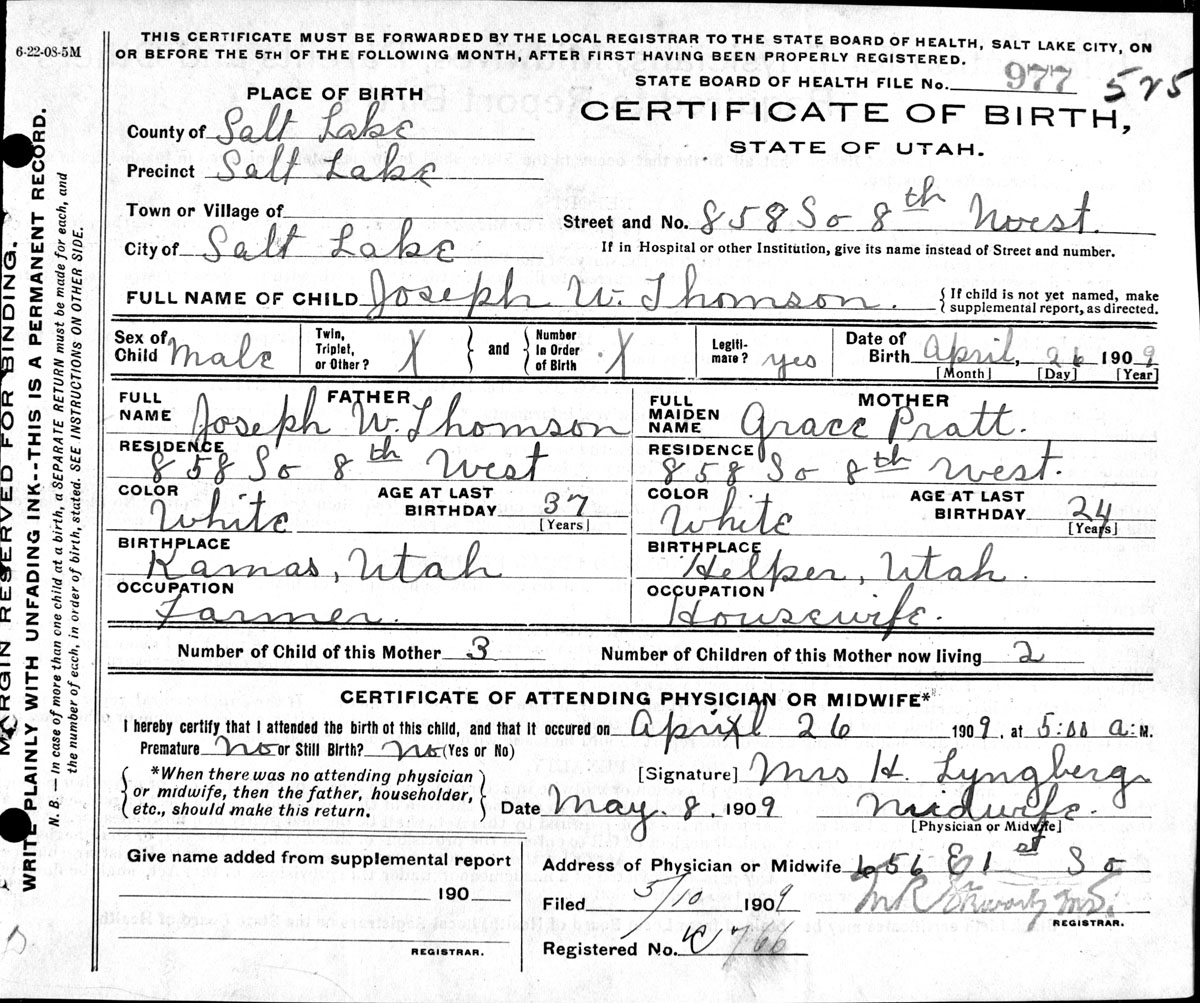 6-22-08-5M
THIS CERTIFICATE MUST BE FORWARDED BY THE LOCAL REGISTRAR TO THE STATE BOARD OF HEALTH, SALT LAKE CITY, ON
OR BEFORE THE 5TH OF THE FOLLOWING MONTH, AFTER FIRST HAVING BEEN PROPERLY REGISTERED.
STATE BOARD OF HEALTH FILE No. 977 525
CERTIFICATE OF BIRTH,
STATE OF UTAH.
PLACE OF BIRTH
County of Salt Lake
Precinct Salt Lake
Town or Village of
Street and No. 858 So 8th West.
City of Salt Lake
If in Hospital or other Institution, give its name instead of Street and number.
FULL NAME OF CHILD Joseph W. Thomson. { If child is not yet named, make
supplemental report, as directed.
Sex of Child Male Twin, Triplet, or Other? X } and { Number In Order of Birth X Legiti-mate? yes Date of Birth April, 26 1909
[Month] [Day] [Year]
FATHER
FULL NAME Joseph W. Thomson
RESIDENCE
858 So 8th West
COLOR White AGE AT LAST BIRTHDAY 37
[Years]
BIRTHPLACE
Kamas, Utah
OCCUPATION
Farmer.
MOTHER
FULL MAIDEN NAME Grace Pratt.
RESIDENCE
858 So 8th West.
COLOR White AGE AT LAST BIRTHDAY 24
[Years]
BIRTHPLACE
Helper, Utah.
OCCUPATION
Housewife.
Number of Child of this Mother 3 Number of Children of this Mother now living 2
CERTIFICATE OF ATTENDING PHYSICIAN OR MIDWIFE*
I hereby certify that I attended the birth of this child, and that it occured on April 26 1909, at 5:00 a. M.
Premature no or Still Birth? no (Yes or No)
{ *When there was no attending physician
or midwife, then the father, householder,
etc., should make this return. }
[Signature] Mrs H. Lyngberg
Date May 8, 1909 Midwife.
[Physician or Midwife]
Give name added from supplemental report
190
REGISTRAR.
Address of Physician or Midwife 656 E 1st So
Filed 5/10 1909
REGISTRAR.
Registered No. C 766
MARGIN RESERVED FOR BINDING.
WRITE PLAINLY WITH UNFADING INK--THIS IS A PERMANENT RECORD.
N. B. — In case of more than one child at a birth, a SEPARATE RETURN must be made for each, and
the number of each, in order of birth, stated. SEE INSTRUCTIONS ON OTHER SIDE.